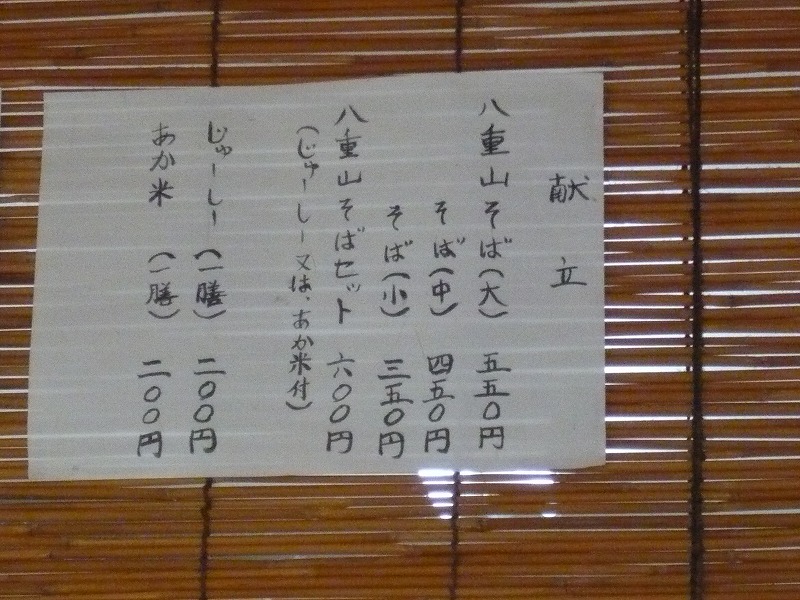 献立
八重山そば(大) 五五〇円
そば(中) 四五〇円
そば(小) 三五〇円
八重山そばセット 六〇〇円
(じゅーしー又は、あか米付)
じゅーしー (一膳) 二〇〇円
あか米 (一膳) 二〇〇円